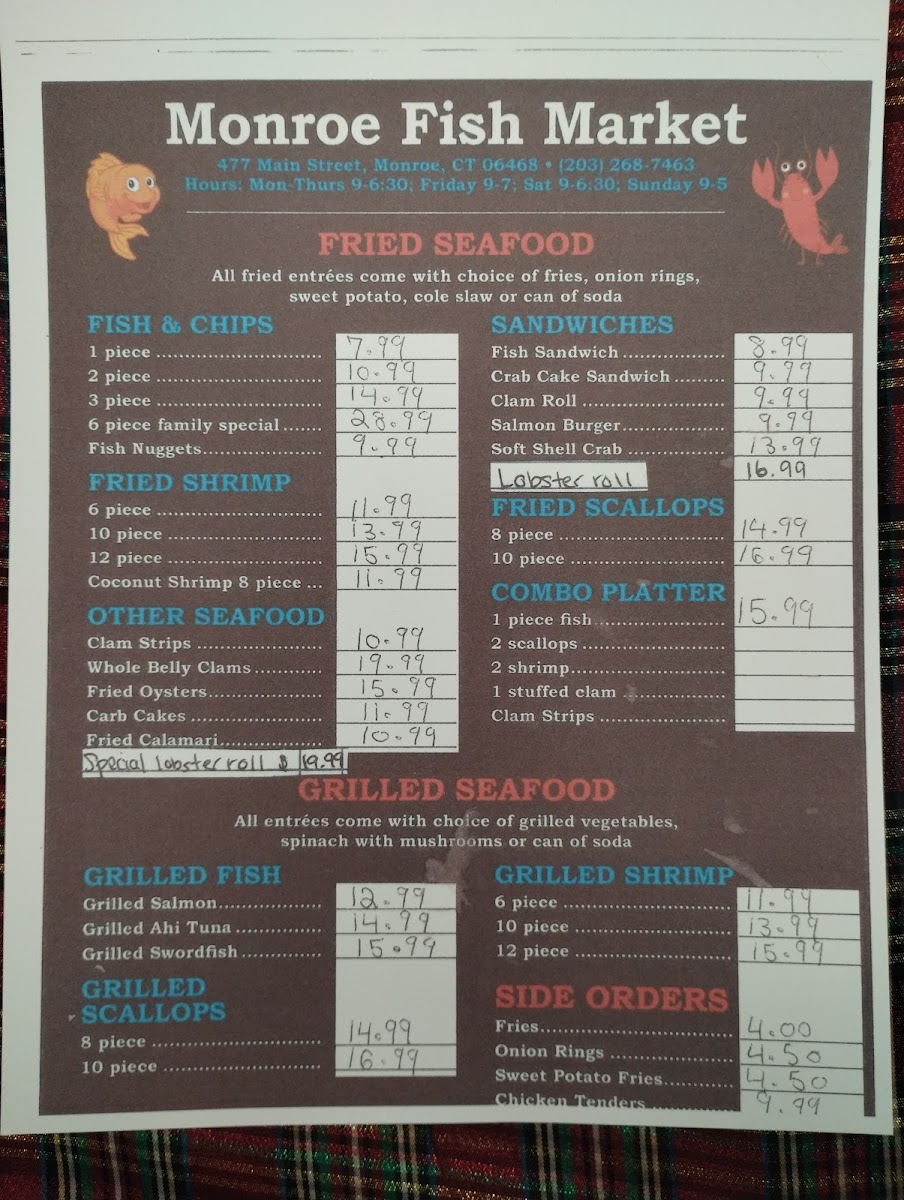 Monroe Fish Market
477 Main Street, Monroe, CT 06468 • (203) 268-7463
Hours: Mon-Thurs 9-6:30; Friday 9-7; Sat 9-6:30; Sunday 9-5
FRIED SEAFOOD
All fried entrées come with choice of fries, onion rings,
sweet potato, cole slaw or can of soda
FISH & CHIPS
1 piece ............................ 7.99
2 piece ............................ 10.99
3 piece ............................ 14.99
6 piece family special ....... 28.99
Fish Nuggets..................... 9.99
FRIED SHRIMP
6 piece ............................ 11.99
10 piece .......................... 13.99
12 piece .......................... 15.99
Coconut Shrimp 8 piece ... 11.99
OTHER SEAFOOD
Clam Strips ...................... 10.99
Whole Belly Clams ............ 19.99
Fried Oysters.................... 15.99
Carb Cakes ...................... 11.99
Fried Calamari.................. 10.99
Special lobster roll $ 19.99
SANDWICHES
Fish Sandwich .................. 8.99
Crab Cake Sandwich ......... 9.99
Clam Roll ......................... 9.99
Salmon Burger.................. 9.99
Soft Shell Crab ................. 13.99
Lobster roll 16.99
FRIED SCALLOPS
8 piece ............................ 14.99
10 piece .......................... 16.99
COMBO PLATTER
1 piece fish....................... 15.99
2 scallops .........................
2 shrimp...........................
1 stuffed clam ..................
Clam Strips ......................
GRILLED SEAFOOD
All entrées come with choice of grilled vegetables,
spinach with mushrooms or can of soda
GRILLED FISH
Grilled Salmon.................. 12.99
Grilled Ahi Tuna ............... 14.99
Grilled Swordfish .............. 15.99
GRILLED
SCALLOPS
8 piece ............................ 14.99
10 piece .......................... 16.99
GRILLED SHRIMP
6 piece ............................ 11.99
10 piece .......................... 13.99
12 piece .......................... 15.99
SIDE ORDERS
Fries................................ 4.00
Onion Rings ..................... 4.50
Sweet Potato Fries............ 4.50
Chicken Tenders ............... 9.99